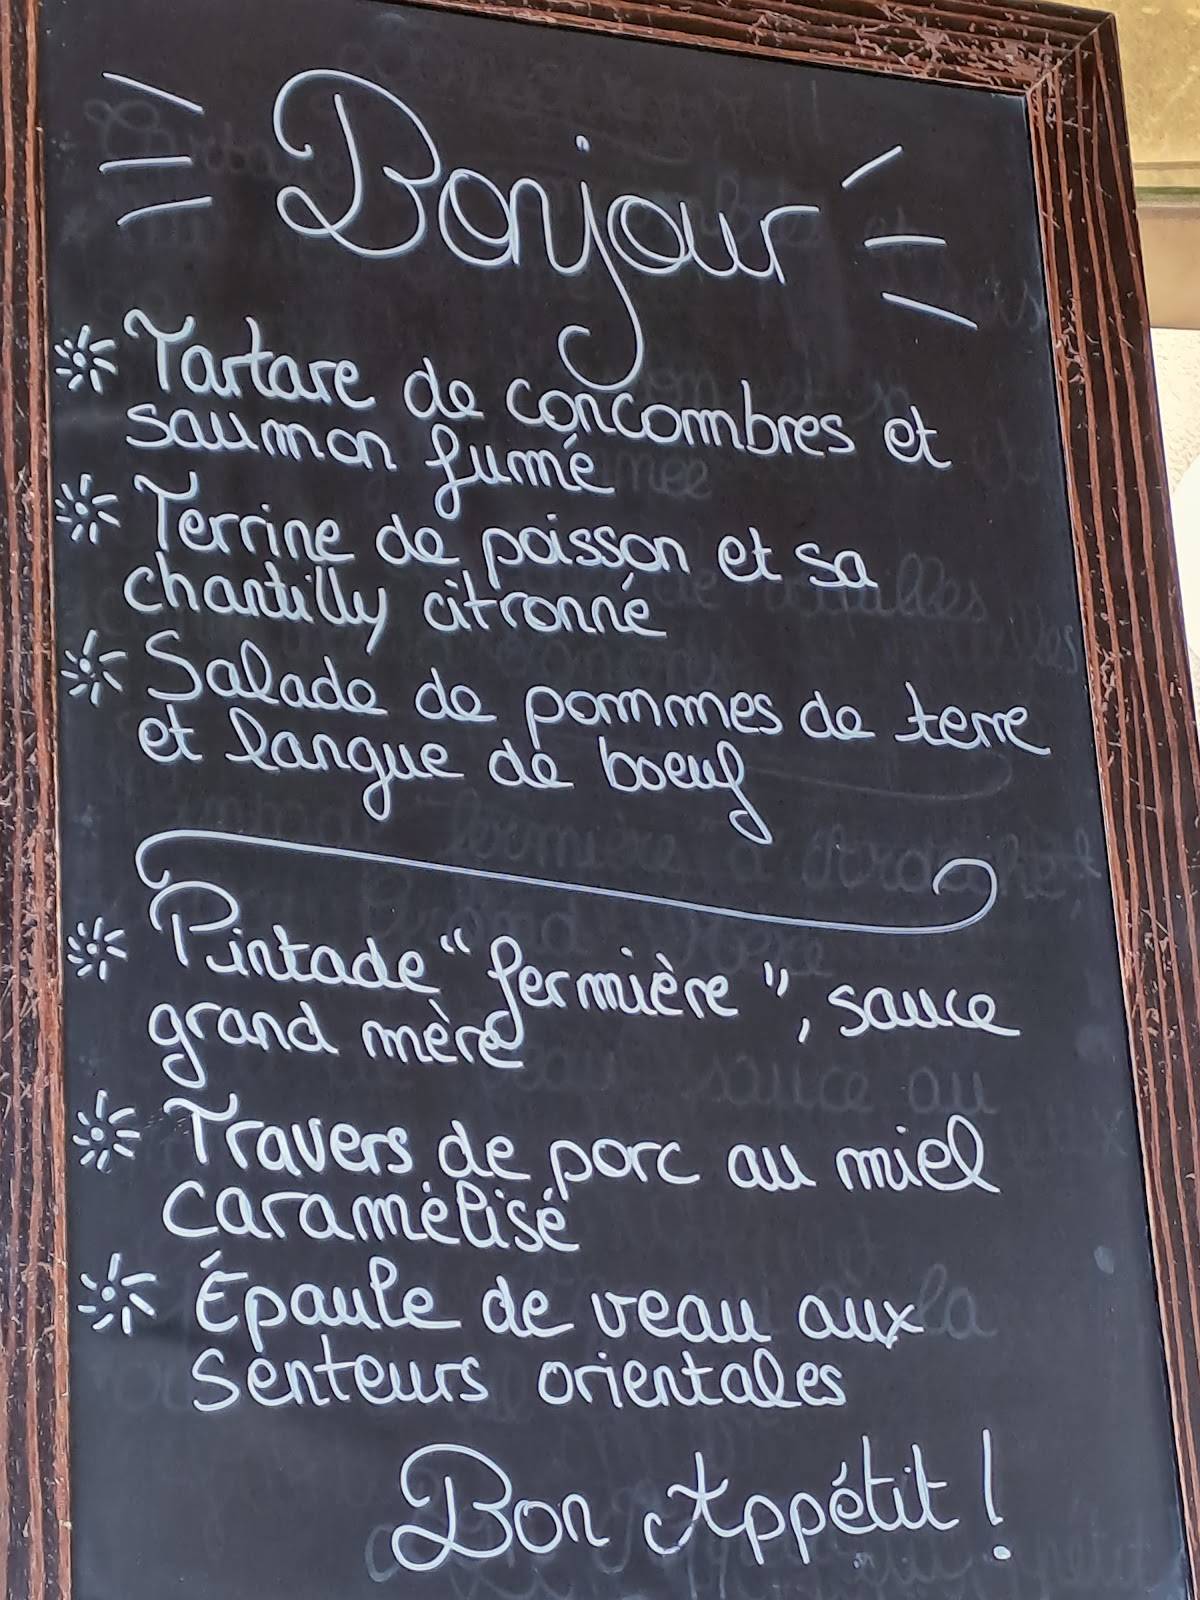 Bonjour
Tartare de concombres et
saumon fumé
Terrine de poisson et sa
chantilly citronné
Salade de pommes de terre
et langue de boeuf
Pintade "fermière", sauce
grand mère
Travers de porc au miel
caramélisé
Épaule de veau aux
senteurs orientales
Bon Appétit !